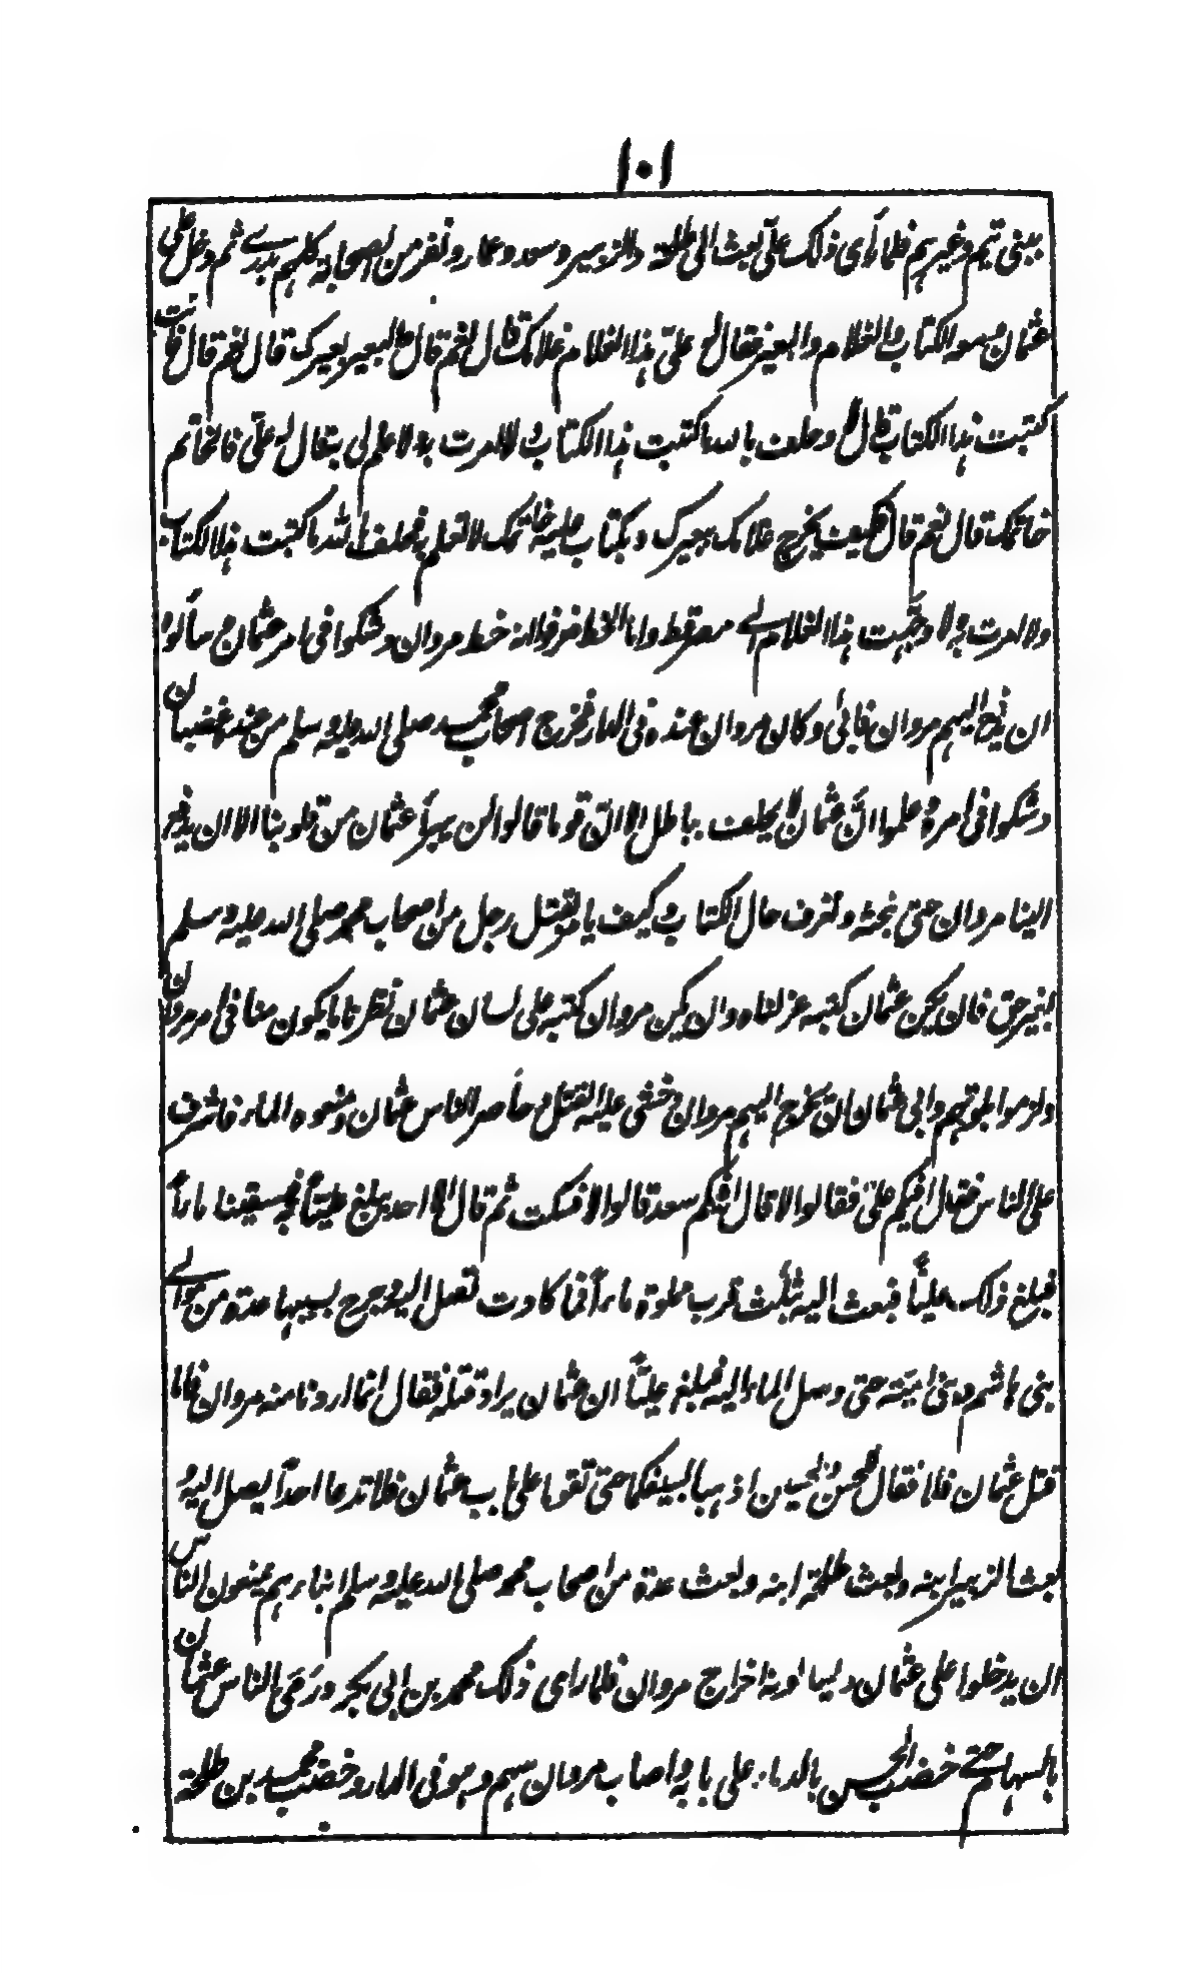 ١٠١
ببنى تيم وغيرهم فلما رأى ذلك علىّ بعث الى طلحة والزبير وسعد وعمار ونفر من الصحابة كلهم بدرى ثم دخل على
عثمان ومعه الكتاب والغلام والبعير فقال له علىّ هذا الغلام غلامك قال نعم قال والبعير بعيرك قال نعم قال فانت
كتبت هذا الكتاب قال لا وحلف بالله ما كتبت هذا الكتاب ولا امرت به ولا علم لى به فقال له علىّ فالخاتم
خاتمك قال نعم قال كيف يخرج غلامك ببعيرك وبكتاب عليه خاتمك لا تعلم به فحلف بالله ما كتبت هذا الكتاب
ولا امرت به ولا وجّهت هذا الغلام الى مصر قط واما الخط فعرفوا انه خط مروان وشكوا فى امر عثمان وسألوه
ان يدفع اليهم مروان فابى وكان مروان عنده فى الدار فخرج اصحاب محمد صلى الله عليه وسلم من عنده غضبانا
وشكوا فى امره وعلموا انّ عثمان لا يحلف بباطل الا انّ قوما قالوا لن يبرأ عثمان من قلوبنا الا ان يدفع
الينا مروان حتى نبحثه ونعرف حال الكتاب وكيف يامر بقتل رجل من اصحاب محمد صلى الله عليه وسلم
بغير حق فان يكن عثمان كتبه عزلناه وان يكن مروان كتبه على لسان عثمان نظرنا ما يكون منا فى امر مروان
ولزموا بيوتهم وابى عثمان ان يخرج اليهم مروان وخشى عليه القتل وحاصر الناس عثمان ومنعوه الماء فاشرف
على الناس فقال افيكم علىّ فقالوا لا قال افيكم سعد قالوا لا فسكت ثم قال الا احد يبلغ عليّاً فيسقينا ماءً
فبلغ ذلك عليّاً فبعث اليه بثلث قرب مملوة ماءً فما كادت تصل اليه وجرح بسببها عدة من موالى
بنى هاشم وبنى امية حتى وصل الماء اليه فبلغ عليّاً ان عثمان يراد قتله فقال انما اردنا منه مروان فاما
قتل عثمان فلا فقال للحسن والحسين اذهبا بسيفكما حتى تقوما على باب عثمان فلا تدعا احداً يصل اليه و
بعث الزبير ابنه وبعث طلحة ابنه وبعث عدة من اصحاب محمد صلى الله عليه وسلم ابناءهم يمنعون الناس
ان يدخلوا على عثمان ويسألونه اخراج مروان فلما راى ذلك محمد بن ابى بكر ورَمَى الناس عثمان
بالسهام حتى خضب الحسن بالدماء على بابه واصاب مروان سهم وهو فى الدار وخضب محمد بن طلحة